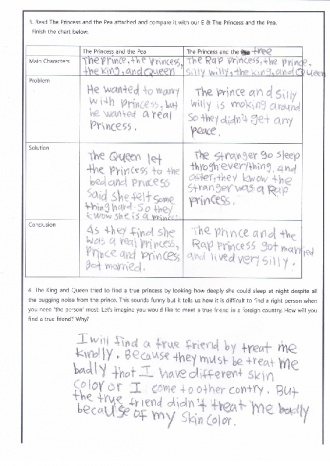 3. Read The Princess and the Pea attached and compare it with our E.B The Princess and the Pea.
Finish the chart below.
The Princess and the Pea
The Princess and the tree
Main Characters
The Prince, the princess,
the king, and Queen
The Rap Princess, the prince,
silly willy, the king, and Queen
Problem
He wanted to marry
with princess, but
he wanted a real
Princess.
The prince and silly
willy is moking around
So they didn't get any
peace.
Solution
The Queen let
the Princess to the
bed and
said she felt some
thing hard. So they
know she is a
The stranger go sleep
throgh everything, and
after, they know the
stranger was a Rap
princess.
Conclusion
As they find she
was a real princess,
Prince and princess
got married.
The prince and the
Rap princess got married
and lived very silly.
4. The King and Queen tried to find a true princess by looking how deeply she could sleep at night despite all
the bugging noise from the prince. This sounds funny but it tells us how it is difficult to find a right person when
you need 'the person' most. Let's imagine you would like to meet a true friend in a foreign country. How will you
find a true friend? Why?
I will find a true friend by treat me
kindly. Because they must be treat me
badly that I have different skin
color or I come to other contry. But
the true friend didn't treat me badly
because of my skin color.